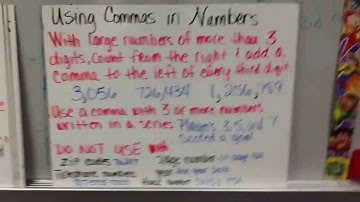 Using Commas in Numbers
With large numbers of more than 3
digits, count from the right & add a
comma to the left of every third digit.
3,056 726,434 1,256,789
Use a comma with 3 or more numbers
written in a series. Players 3, 5, and 7
scored a goal
DO NOT USE
Zip codes Page number on page
Telephone numbers Year the year
House number